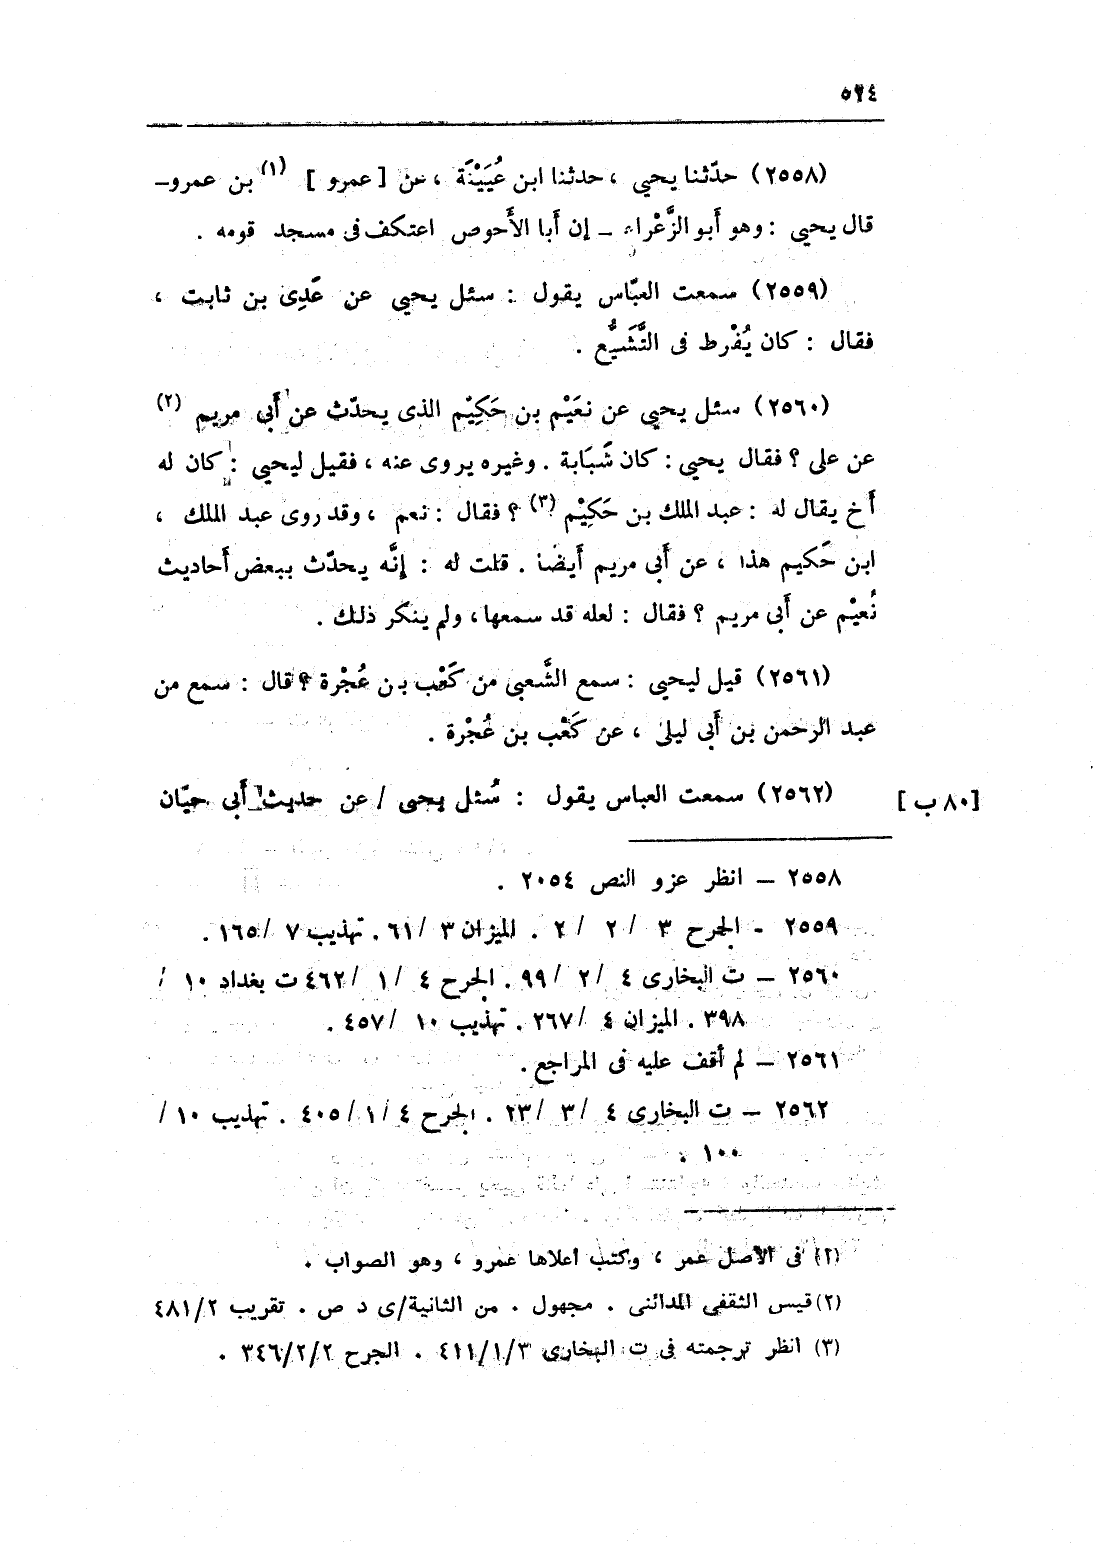 ٥٢٤
(٢٥٥٨) حدّثنا يحيي ، حدثنا ابن عُيَيْنَة ، عن [ عمرو ] (١) بن عمرو ــ
قال يحيي : وهو أَبو الزَّعْراء ــ إن أَبا الأَحوص اعتكف فى مسجد قومه .
(٢٥٥٩) سمعت العبّاس يقول : سئل يحيي عن عَدِى بن ثابت ،
فقال : كان يُفْرط فى التَّشَيُّع .
(٢٥٦٠) سئل يحيي عن نعَيْم بن حَكِيْم الذى يحدّث عن أَبى مريم (٢)
عن على ؟ فقال يحيي : كان شَبَابة . وغيره يروى عنه ، فقيل ليحيي : كان له
أَخ يقال له : عبد الملك بن حَكِيْم (٣) ؟ فقال : نعم ، وقد روى عبد الملك ،
ابن حَكيم هذا ، عن أَبى مريم أَيضًا . قلت له : إنَّه يحدّث ببعض أَحاديث
نُعيْم عن أَبى مريم ؟ فقال : لعله قد سمعها ، ولم ينكر ذلك .
(٢٥٦١) قيل ليحيي : سمع الشَّعبى من كَعْب بن عُجْرة ؟ قال : سمع من
عبد الرحمن بن أَبى ليلى ، عن كَعْب بن عُجْرة .
(٢٥٦٢) سمعت العباس يقول : سُئل يحيى / عن حديث أَبى حيّان
[٨٠ ب]
٢٥٥٨ ــ انظر عزو النص ٢٠٥٤ .
٢٥٥٩ - الجرح ٣ / ٢ / ٢ . الميزان ٣ / ٦١ . تهذيب ٧ / ١٦٥ .
٢٥٦٠ ــ ت البخارى ٤ / ٢ / ٩٩ . الجرح ٤ / ١ / ٤٦٢ ت بغداد ١٠ /
٣٩٨ . الميزان ٤ / ٢٦٧ . تهذيب ١٠ / ٤٥٧ .
٢٥٦١ ــ لم أقف عليه فى المراجع .
٢٥٦٢ ــ ت البخارى ٤ / ٣ / ٢٣ . الجرح ٤ / ١ / ٤٠٥ . تهذيب ١٠ /
١٠٠ .
(٢) فى الأصل عمر ، وكتب أعلاها عمرو ، وهو الصواب .
(٢) قيس الثقفى المدائنى . مجهول . من الثانية/ى د ص . تقريب ٤٨١/٢
(٣) انظر ترجمته فى ت البخارى ٤١١/١/٣ . الجرح ٣٤٦/٢/٢ .